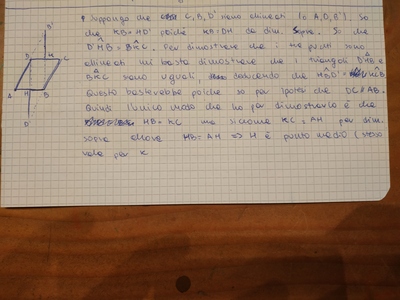 Suppongo che C, B, D' siano allineati [o A, D, B']. So
che KB = HD' poiché KB = DH da dim. Sopra. So che
D'HB = BKC. Per dimostrare che i punti sono
allineati mi basta dimostrare che i triangoli D'HB e
BKC sono uguali, deducendo che HBD' =
Questo basterebbe poiché so per ipotesi che DC // AB.
Quindi l'unico modo che ho per dimostrarlo è che
HB = KC ma siccome KC = AH per dim.
sopra allora HB = AH ⇔ H è punto medio (stesso
vale per K
B'
D
K
C
A
H
B
D'